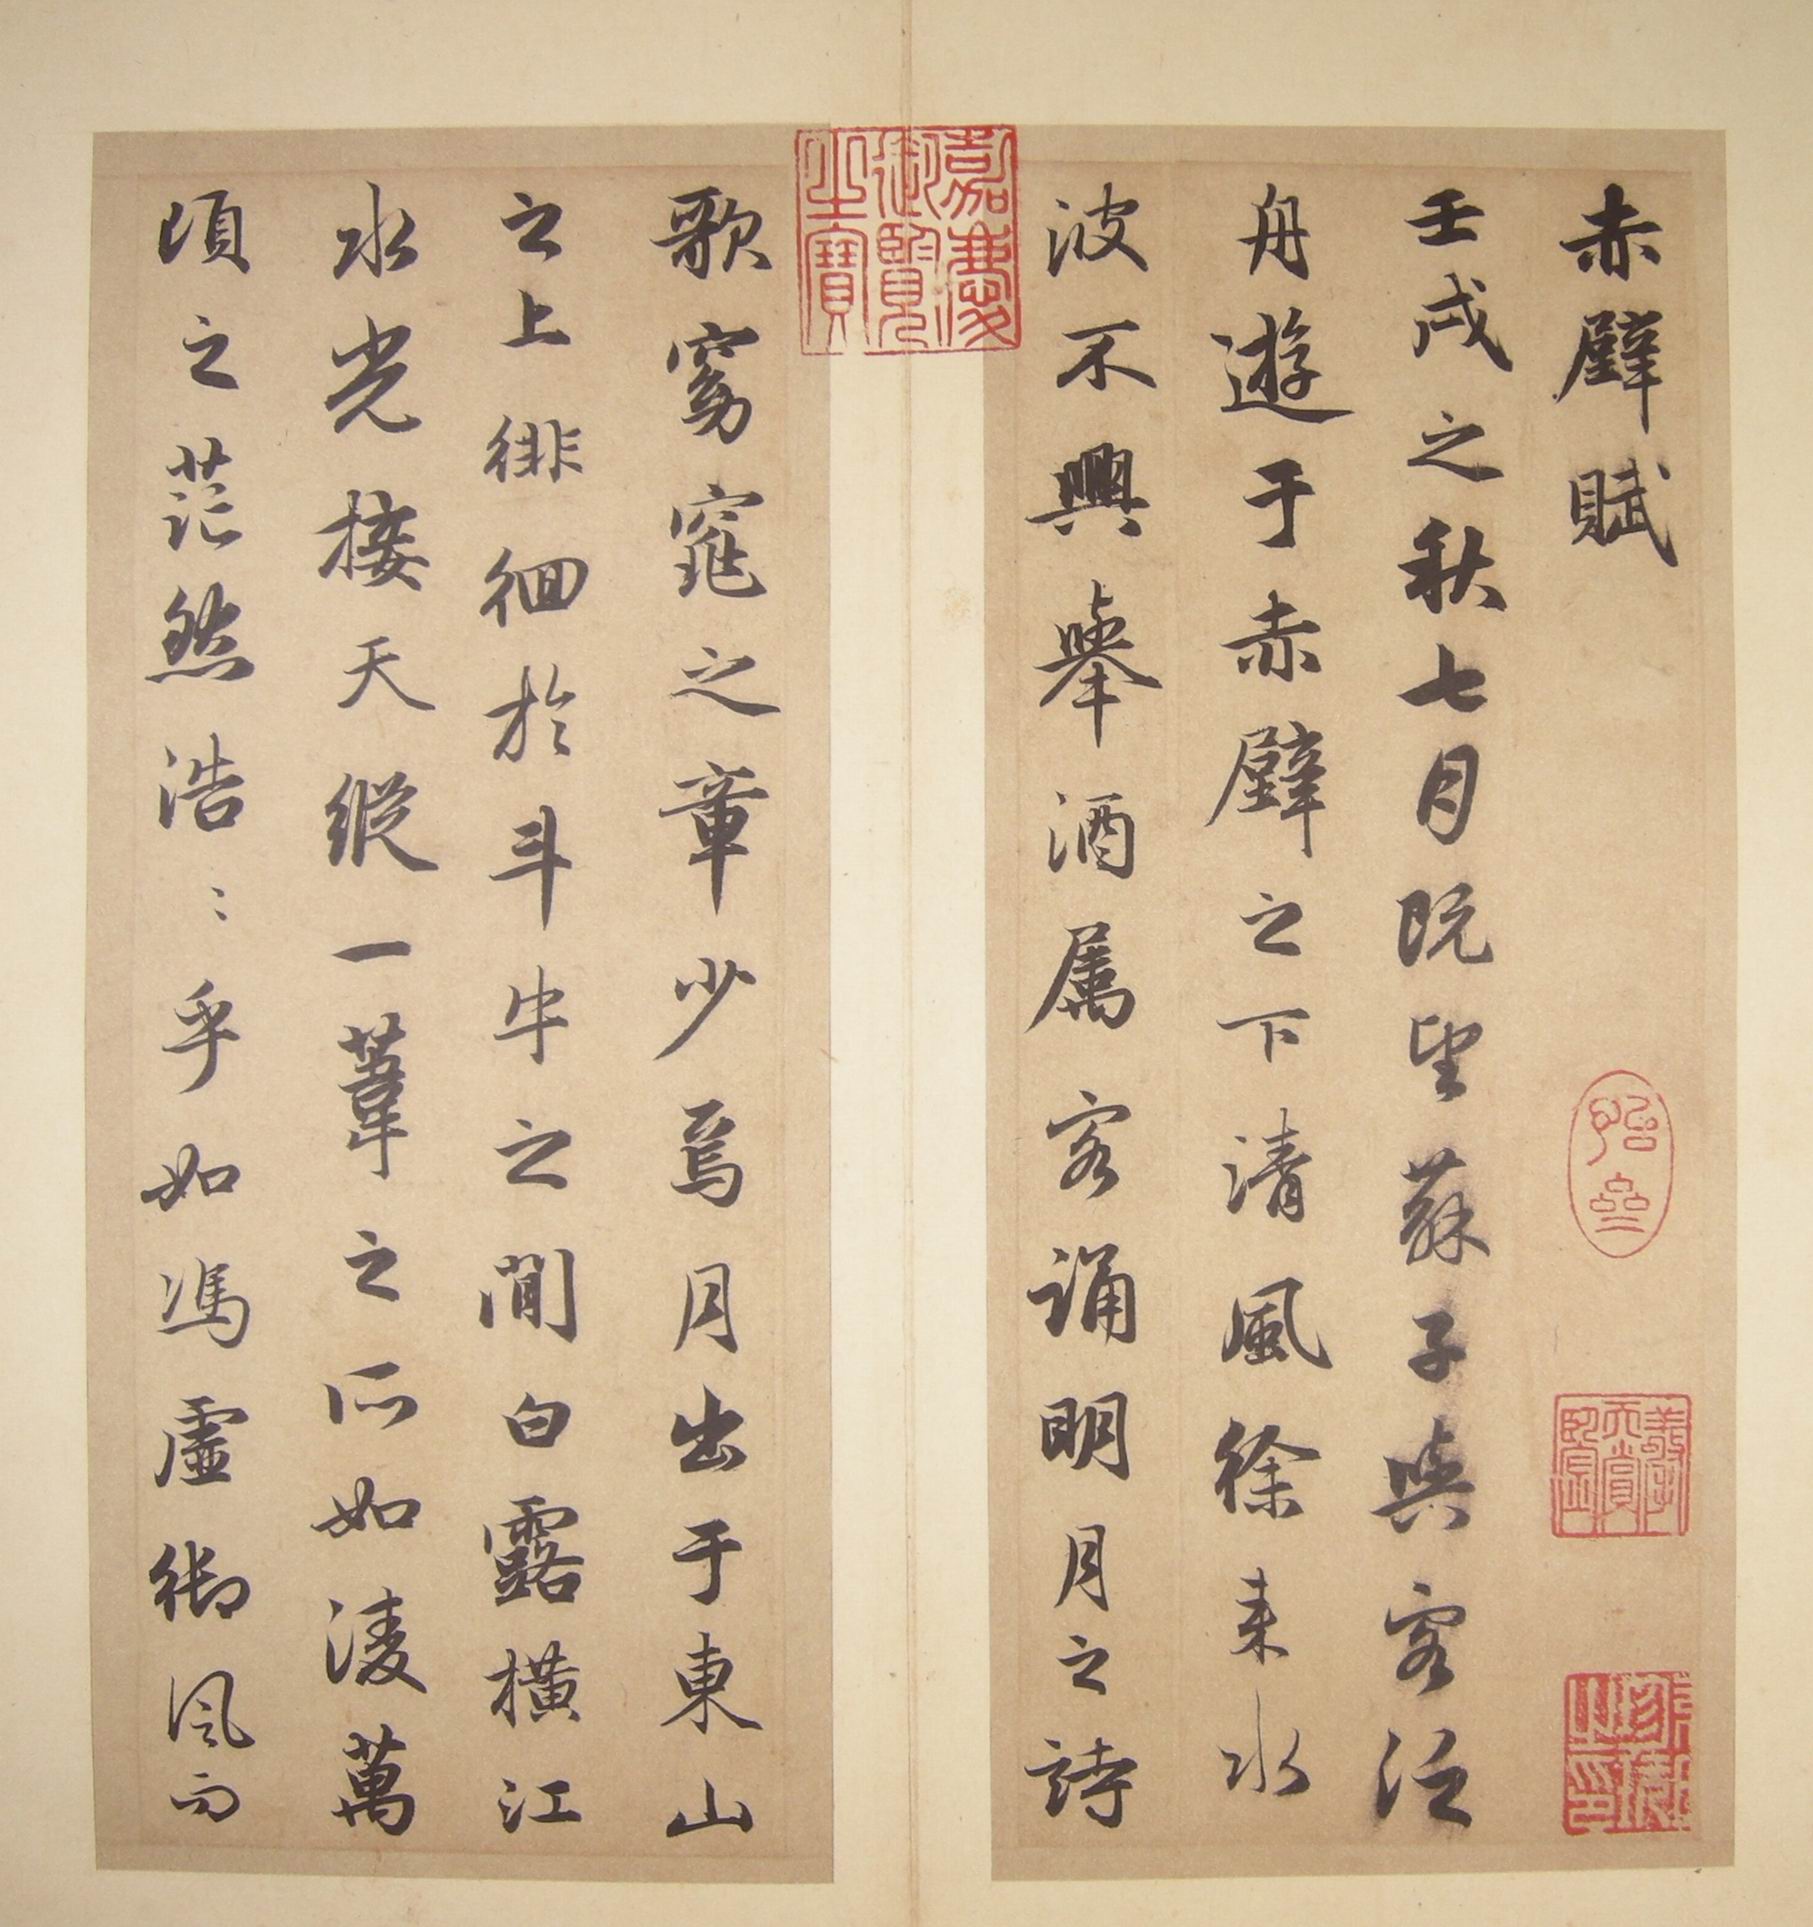 赤壁賦
壬戌之秋七月既望蘇子與客泛
舟遊于赤壁之下清風徐来水
波不興舉酒属客誦明月之詩
嘉慶御覽之寶
歌窈窕之章少焉月出于東山
之上徘徊於斗牛之間白露橫江
水光接天縱一葦之所如淩萬
頃之茫然浩〻乎如馮虛御風而